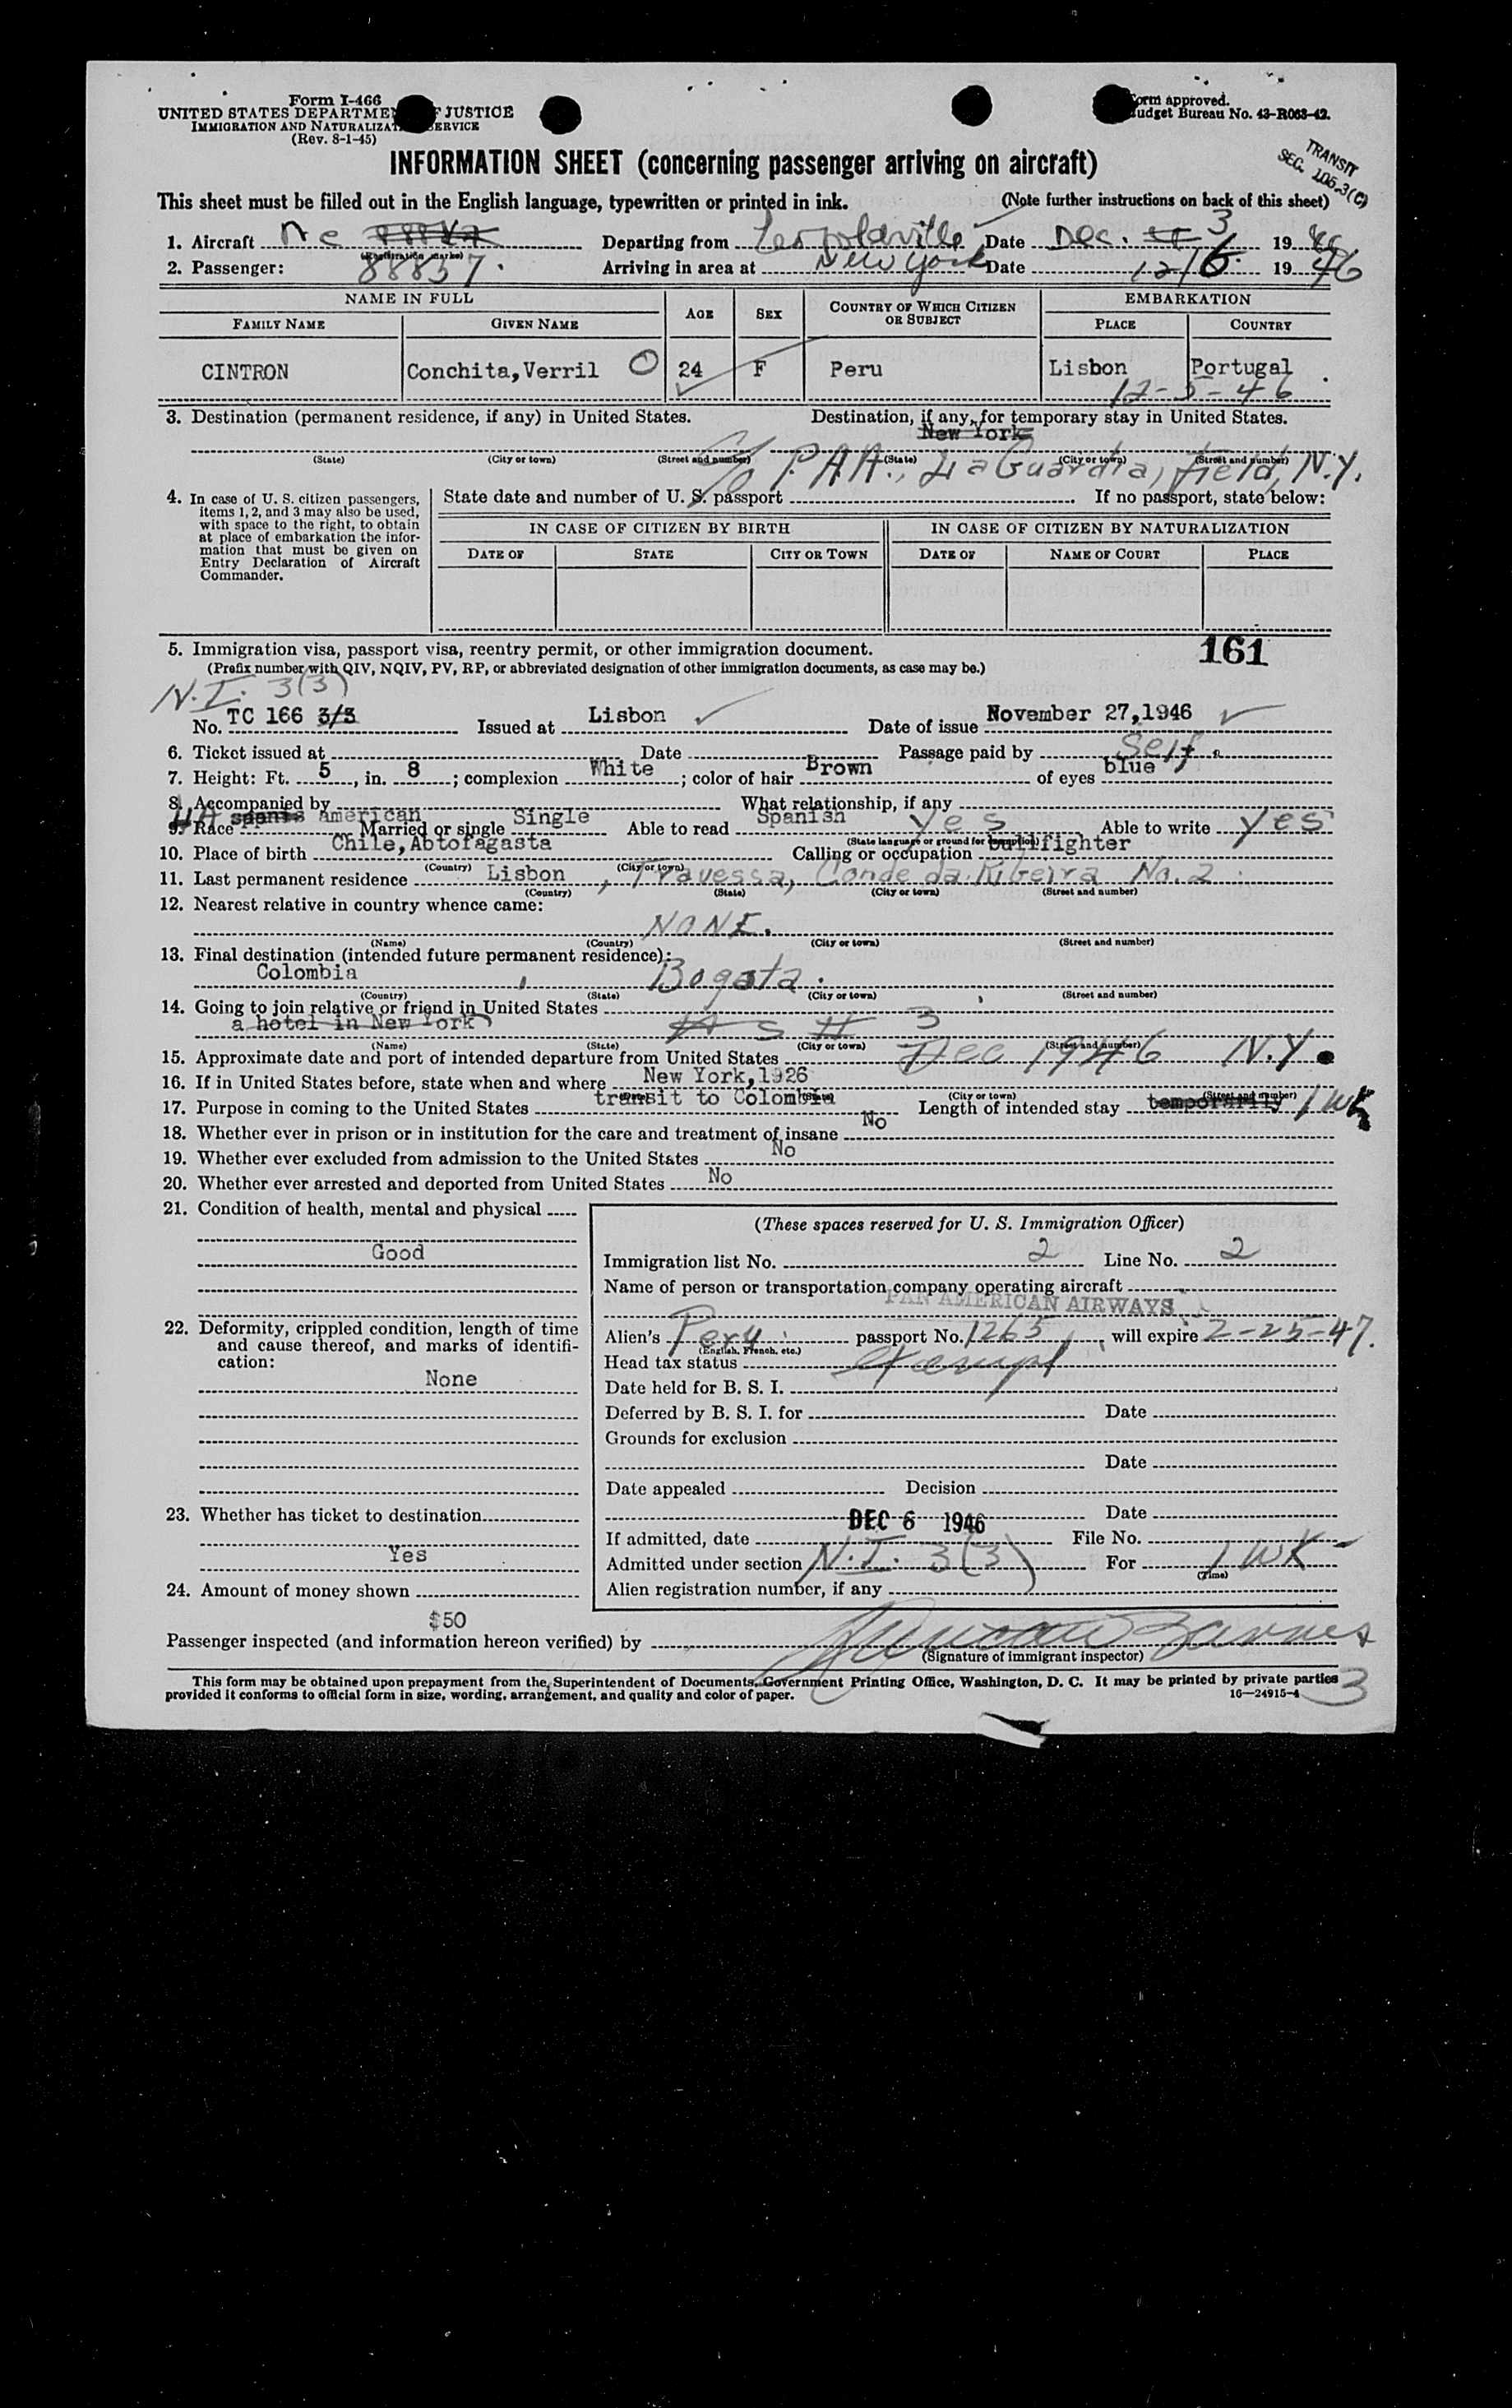 Form I-466
UNITED STATES DEPARTMENT OF JUSTICE
IMMIGRATION AND NATURALIZATION SERVICE
(Rev. 8-1-45)
Form approved.
Budget Bureau No. 43-R063-42.
TRANSIT
SEC. 105.3(C)
INFORMATION SHEET (concerning passenger arriving on aircraft)
This sheet must be filled out in the English language, typewritten or printed in ink. (Note further instructions on back of this sheet)
1. Aircraft NC 88857. Departing from Leopoldville Date Dec. 3 1946
(Registration marks)
2. Passenger: Arriving in area at New York Date 12/6 1946
NAME IN FULL AGE SEX COUNTRY OF WHICH CITIZEN OR SUBJECT EMBARKATION
FAMILY NAME GIVEN NAME PLACE COUNTRY
CINTRON Conchita,Verril 24 F Peru Lisbon Portugal
12-5-46
3. Destination (permanent residence, if any) in United States. Destination, if any, for temporary stay in United States.
New York
C/o PAA., LaGuardia, Field, N.Y.
(State) (City or town) (Street and number) (State) (City or town) (Street and number)
4. In case of U. S. citizen passengers, items 1, 2, and 3 may also be used, with space to the right, to obtain at place of embarkation the information that must be given on Entry Declaration of Aircraft Commander.
State date and number of U. S. passport If no passport, state below:
IN CASE OF CITIZEN BY BIRTH IN CASE OF CITIZEN BY NATURALIZATION
DATE OF STATE CITY OR TOWN DATE OF NAME OF COURT PLACE
161
5. Immigration visa, passport visa, reentry permit, or other immigration document.
(Prefix number with QIV, NQIV, PV, RP, or abbreviated designation of other immigration documents, as case may be.)
N.I. 3(3)
No. TC 166 3/3 Issued at Lisbon Date of issue November 27,1946
6. Ticket issued at Date Passage paid by Self
7. Height: Ft. 5, in. 8; complexion White; color of hair Brown of eyes blue
8. Accompanied by What relationship, if any
9. Race American Married or single Single Able to read Spanish yes Able to write yes
(State language or ground for exemption)
10. Place of birth Chile,Abtofagasta Calling or occupation bullfighter
(Country) (City or town)
11. Last permanent residence Lisbon, Travessa, Conde da Ribeira No. 2
(Country) (State) (City or town) (Street and number)
12. Nearest relative in country whence came:
NONE.
(Name) (Country) (City or town) (Street and number)
13. Final destination (intended future permanent residence):
Colombia, Bogata.
(Country) (State) (City or town) (Street and number)
14. Going to join relative or friend in United States
a hotel in New York
(Name) (State) (City or town) (Street and number)
15. Approximate date and port of intended departure from United States Dec 1946 N.Y.
16. If in United States before, state when and where New York,1926
(Date) (State) (City or town) (Street and number)
17. Purpose in coming to the United States transit to Colombia Length of intended stay temporarily 1 wk
18. Whether ever in prison or in institution for the care and treatment of insane No
19. Whether ever excluded from admission to the United States No
20. Whether ever arrested and deported from United States No
21. Condition of health, mental and physical
Good
22. Deformity, crippled condition, length of time and cause thereof, and marks of identification:
None
23. Whether has ticket to destination
Yes
24. Amount of money shown
$50
(These spaces reserved for U. S. Immigration Officer)
Immigration list No. 2 Line No. 2
Name of person or transportation company operating aircraft
PAN AMERICAN AIRWAYS
Alien's Peru passport No. 1265, will expire 2-25-47.
(English, French, etc.)
Head tax status exempt
Date held for B. S. I.
Deferred by B. S. I. for Date
Grounds for exclusion
Date
Date appealed Decision
Date
If admitted, date DEC 6 1946 File No.
Admitted under section N.I. 3(3) For 1 WK
(Time)
Alien registration number, if any
Passenger inspected (and information hereon verified) by
(Signature of immigrant inspector)
This form may be obtained upon prepayment from the Superintendent of Documents, Government Printing Office, Washington, D. C. It may be printed by private parties
provided it conforms to official form in size, wording, arrangement, and quality and color of paper. 16—24915-4
3